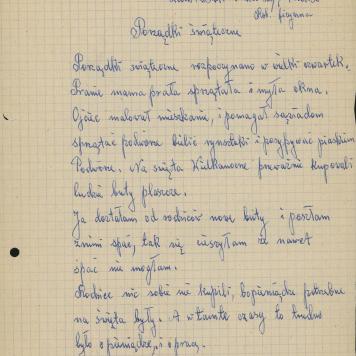 Rob. fizyczna
Porządki świąteczne
Porządki świąteczne rozpoczynano w wielki czwartek.
Pranie mama prała sprzątała i myła okna.
Ojciec malował mieszkanie, i pomagał sąsiadom
sprzątać podwórze bielić rynsztoki i posypywać piaskiem
Podwórze. Na święta Wielkanocne przeważnie kupowali
ludzie buty płaszcze.
Ja dostałam od rodziców nowe buty i poszłam
z nimi spać, tak się cieszyłam że nawet
spać nie mogłam.
Rodzice nic sobie nie kupili, bo pieniądze potrzebne
na święta były. A w tamte czasy to trudno
było o pieniądze, i o pracę.